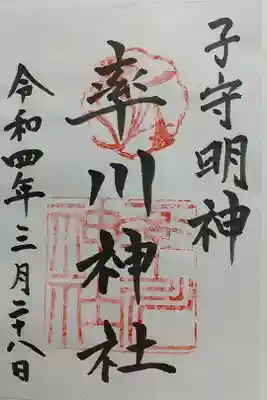 子守明神
率川神社
令和四年三月二十八日